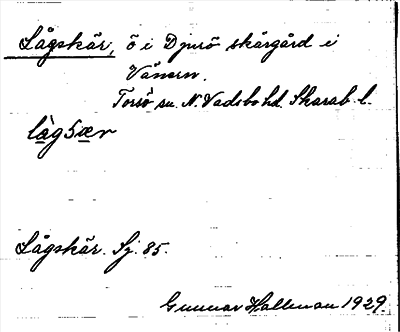 Lågskär, ö i Djurö skärgård i
Vänern.
Torsö sn. N. Vadsbo hd. Skarab. l.
lågsær
Lågskär. Sj. 85.
Gunnar Hallman 1929.